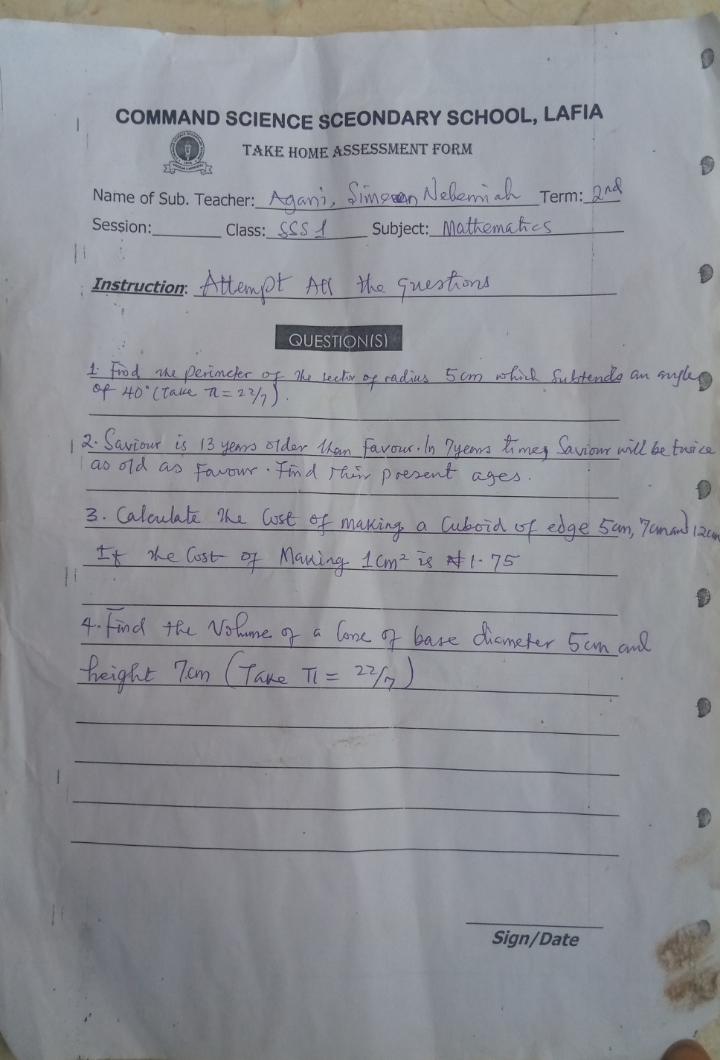 COMMAND SCIENCE SCEONDARY SCHOOL, LAFIA
TAKE HOME ASSESSMENT FORM
Name of Sub. Teacher: Agani, Simeon Nehemiah Term: 2nd
Session: Class: SSS 1 Subject: Mathematics
Instruction: Attempt All the questions
QUESTION(S)
1. Find the perimeter of the sector of radius 5cm which subtends an angle
of 40° (Take π = 22/7).
2. Saviour is 13 years older than Favour. In 7years time, Saviour will be twice
as old as Favour. Find their present ages.
3. Calculate the Cost of making a Cuboid of edge 5cm, 7cm and 12cm
If the Cost of Making 1cm² is ₦1.75
4. Find the Volume of a Cone of base diameter 5cm and
height 7cm (Take π = 22/7)
Sign/Date